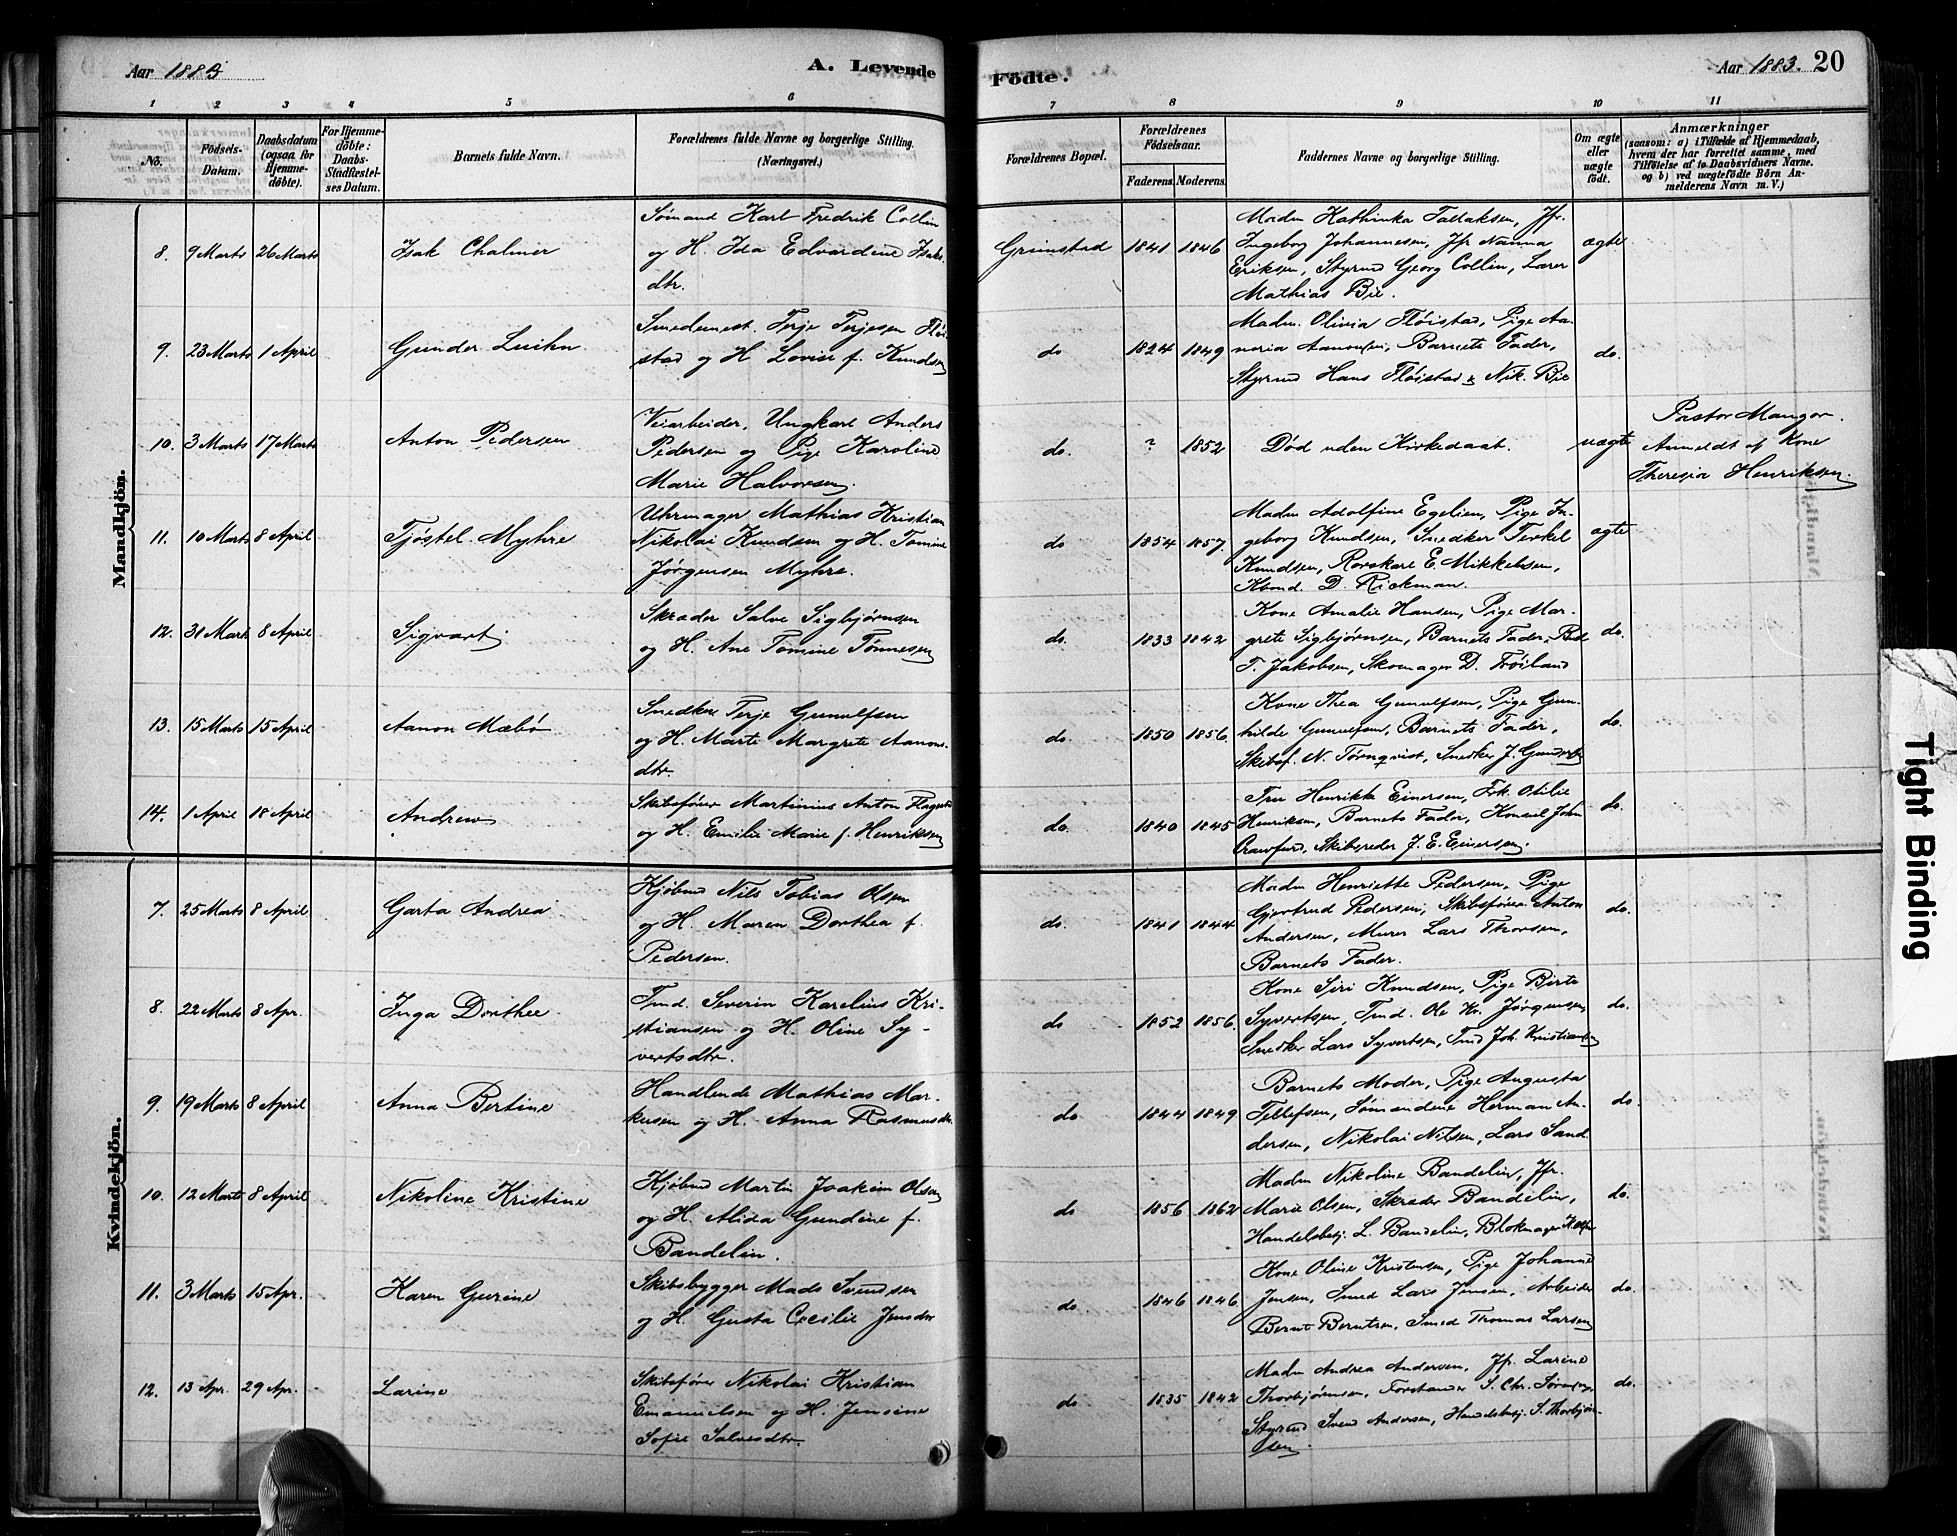 Aar 1883
A. Levende
1 2 3 4 5 6
No.
Födsels-
Datum.
Daabsdatum
(ogsaa for
Hjemme-
døbte).
For Hjemme-
døbte:
Daabs-
Stadfæstel-
ses Datum.
Barnets fulde Navn.
Forældrenes fulde Navne og borgerlige Stilling.
(Næringsvei.)
Mandkjön.
Sømand Karl Fredrik Collin
8. 9 Marts 26 Marts Isak Chalmer og H. Ida Edvardine Isaks-
dtr.
Smedemest. Terje Terjesen Fløi-
9. 23 Marts 1 April Gunder Luihn stad og H. Lovise f. Knudsen
Veiarbeider, Ungkarl Anders
10. 3 Marts 17 Marts Anton Pedersen Pedersen og Pige Karoline
Marie Halvorsen.
Uhrmager Mathias Kristian
11. 10 Marts 8 April Tjøstel Myhre Nikolai Knudsen og H. Tomine
Jørgensen Myhre.
Skræder Salve Sigbjørnsen
12. 31 Marts 8 April Sigvart og H. Ane Tomine Tønnesen
Snedker Terje Gunulfsen
13. 15 Marts 15 April Aanon Mæbø og H. Marte Margrete Aanons-
dtr.
Skibsfører Martinius Anton Flagstad
14. 1 April 18 April Andrew og H. Emilie Marie f. Henriksen
Kvindekjön.
Kjøbmd Nils Tobias Olsen
7. 25 Marts 8 April Garta Andrea og H. Maren Dorthea f.
Pedersen.
Tmd. Severin Karelius Kri-
8. 22 Marts 8 Apr. Inga Dorthee stiansen og H. Oline Sy-
vertsdtr.
Handlende Mathias Mar-
9. 19 Marts 8 April Anna Bertine kusen og H. Anna Rasmusdtr.
Kjøbmd Martin Joakim Olsen
10. 12 Marts 8 April Nikoline Kristine og H. Alida Gundine f.
Bandelin.
Skibsbygger Mads Svendsen
11. 3 Marts 15 Apr. Karen Gurine og H. Gusta Cecilie Jensdtr
Skibsfører Nikolai Kristian
12. 13 Apr. 29 Apr. Larine Emanuelsen og H. Jensine
Sofie Salvesdtr.
Födte.
Aar 1883. 20
7 8 9 10 11
Forældrenes Bopæl.
Forældrenes
Födselsaar.
Faderens. Moderens.
Faddernes Navne og borgerlige Stilling.
Om ægte
eller
uægte
födt.
Anmærkninger
(saasom: a) i Tilfælde af Hjemmedaab,
hvem der har forrettet samme, med
Tilføielse af to Daabsvidners Navne.
og b) ved uægtefödte Börn An-
melderens Navn m. V.)
Madm Kathinka Tallaksen, Jfr.
Grimstad 1841 1846 Ingeborg Johannesen, Jfr Nanna ægte
Eriksen, Styrmd Georg Collin, Lærer
Mathias Bie.
Madm. Olivia Fløistad, Pige Aa-
do 1824 1849 noria Aanonsen, Barnets Fader, do.
Styrmd Hans Fløistad & Nik. Bie
Pastor Mangor.
do. ? 1852 Død uden Kirkedaab. uægte Anmeldt af Kone
Theresia Henriksen.
Madm Adolfine Egelien, Pige In-
do 1854 1857. geborg Knudsen, Snedker Terkel ægte
Knudsen, Rorskarl E. Mikkelsen,
D. Rickman.
Kone Amalie Hansen, Pige Mar-
do. 1833 1842 grete Sigbjørnsen, Barnets Fader, do.
T. Jakobsen, Skomager D. Frøiland
Kone Thea Gunulfsen, Pige Gun-
do 1850 1856. hilde Gunulfsen, Barnets Fader, do.
Skibsf. N. Tørnqvist, Snedker J. Gundersen
Fru Henrikke Einersen, Frk. Otilie
do. 1840 1845 Henriksen, Barnets Fader, Konsul John do.
Crawfurd, Skibsreder J. E. Einersen.
Madm Henriette Pedersen, Pige
do. 1841 1844 Gjertrud Pedersen, Skibsfører Anton do.
Andersen, Murer Lars Thorsen,
Barnets Fader.
Kone Siri Knudsen, Pige Birte
do 1852 1856. Syvertsen, Tmd. Ole Kr. Jørgensen, do.
Snedker Lars Syvertsen, Tmd Joh. Kristiansen
Barnets Moder, Pige Augusta
do 1844 1849 Tellefsen, Sømændene Herman An- do.
dersen, Nikolai Nilsen, Lars Sand.
Madm Nikoline Bandelin, Jfr.
do 1856 1862 Marie Olsen, Skræder Bandelin, do.
Handelsbetj. L. Bandelin, Blokmager K. Olsen
Kone Oline Kristensen, Pige Johanne
do. 1846 1846. Jensen, Smed Lars Jensen, Arbeider do.
Bernt Berntsen, Smed Thomas Larsen
Madm Andrea Andersen, Jfr. Larine
do 1835 1842 Thorbjørnsen, Forstander S. Chr. Sørensen, do.
Styrmd Svend Andersen, Handelsbetj. S. Thorbjørn-
sen.
Tight Binding